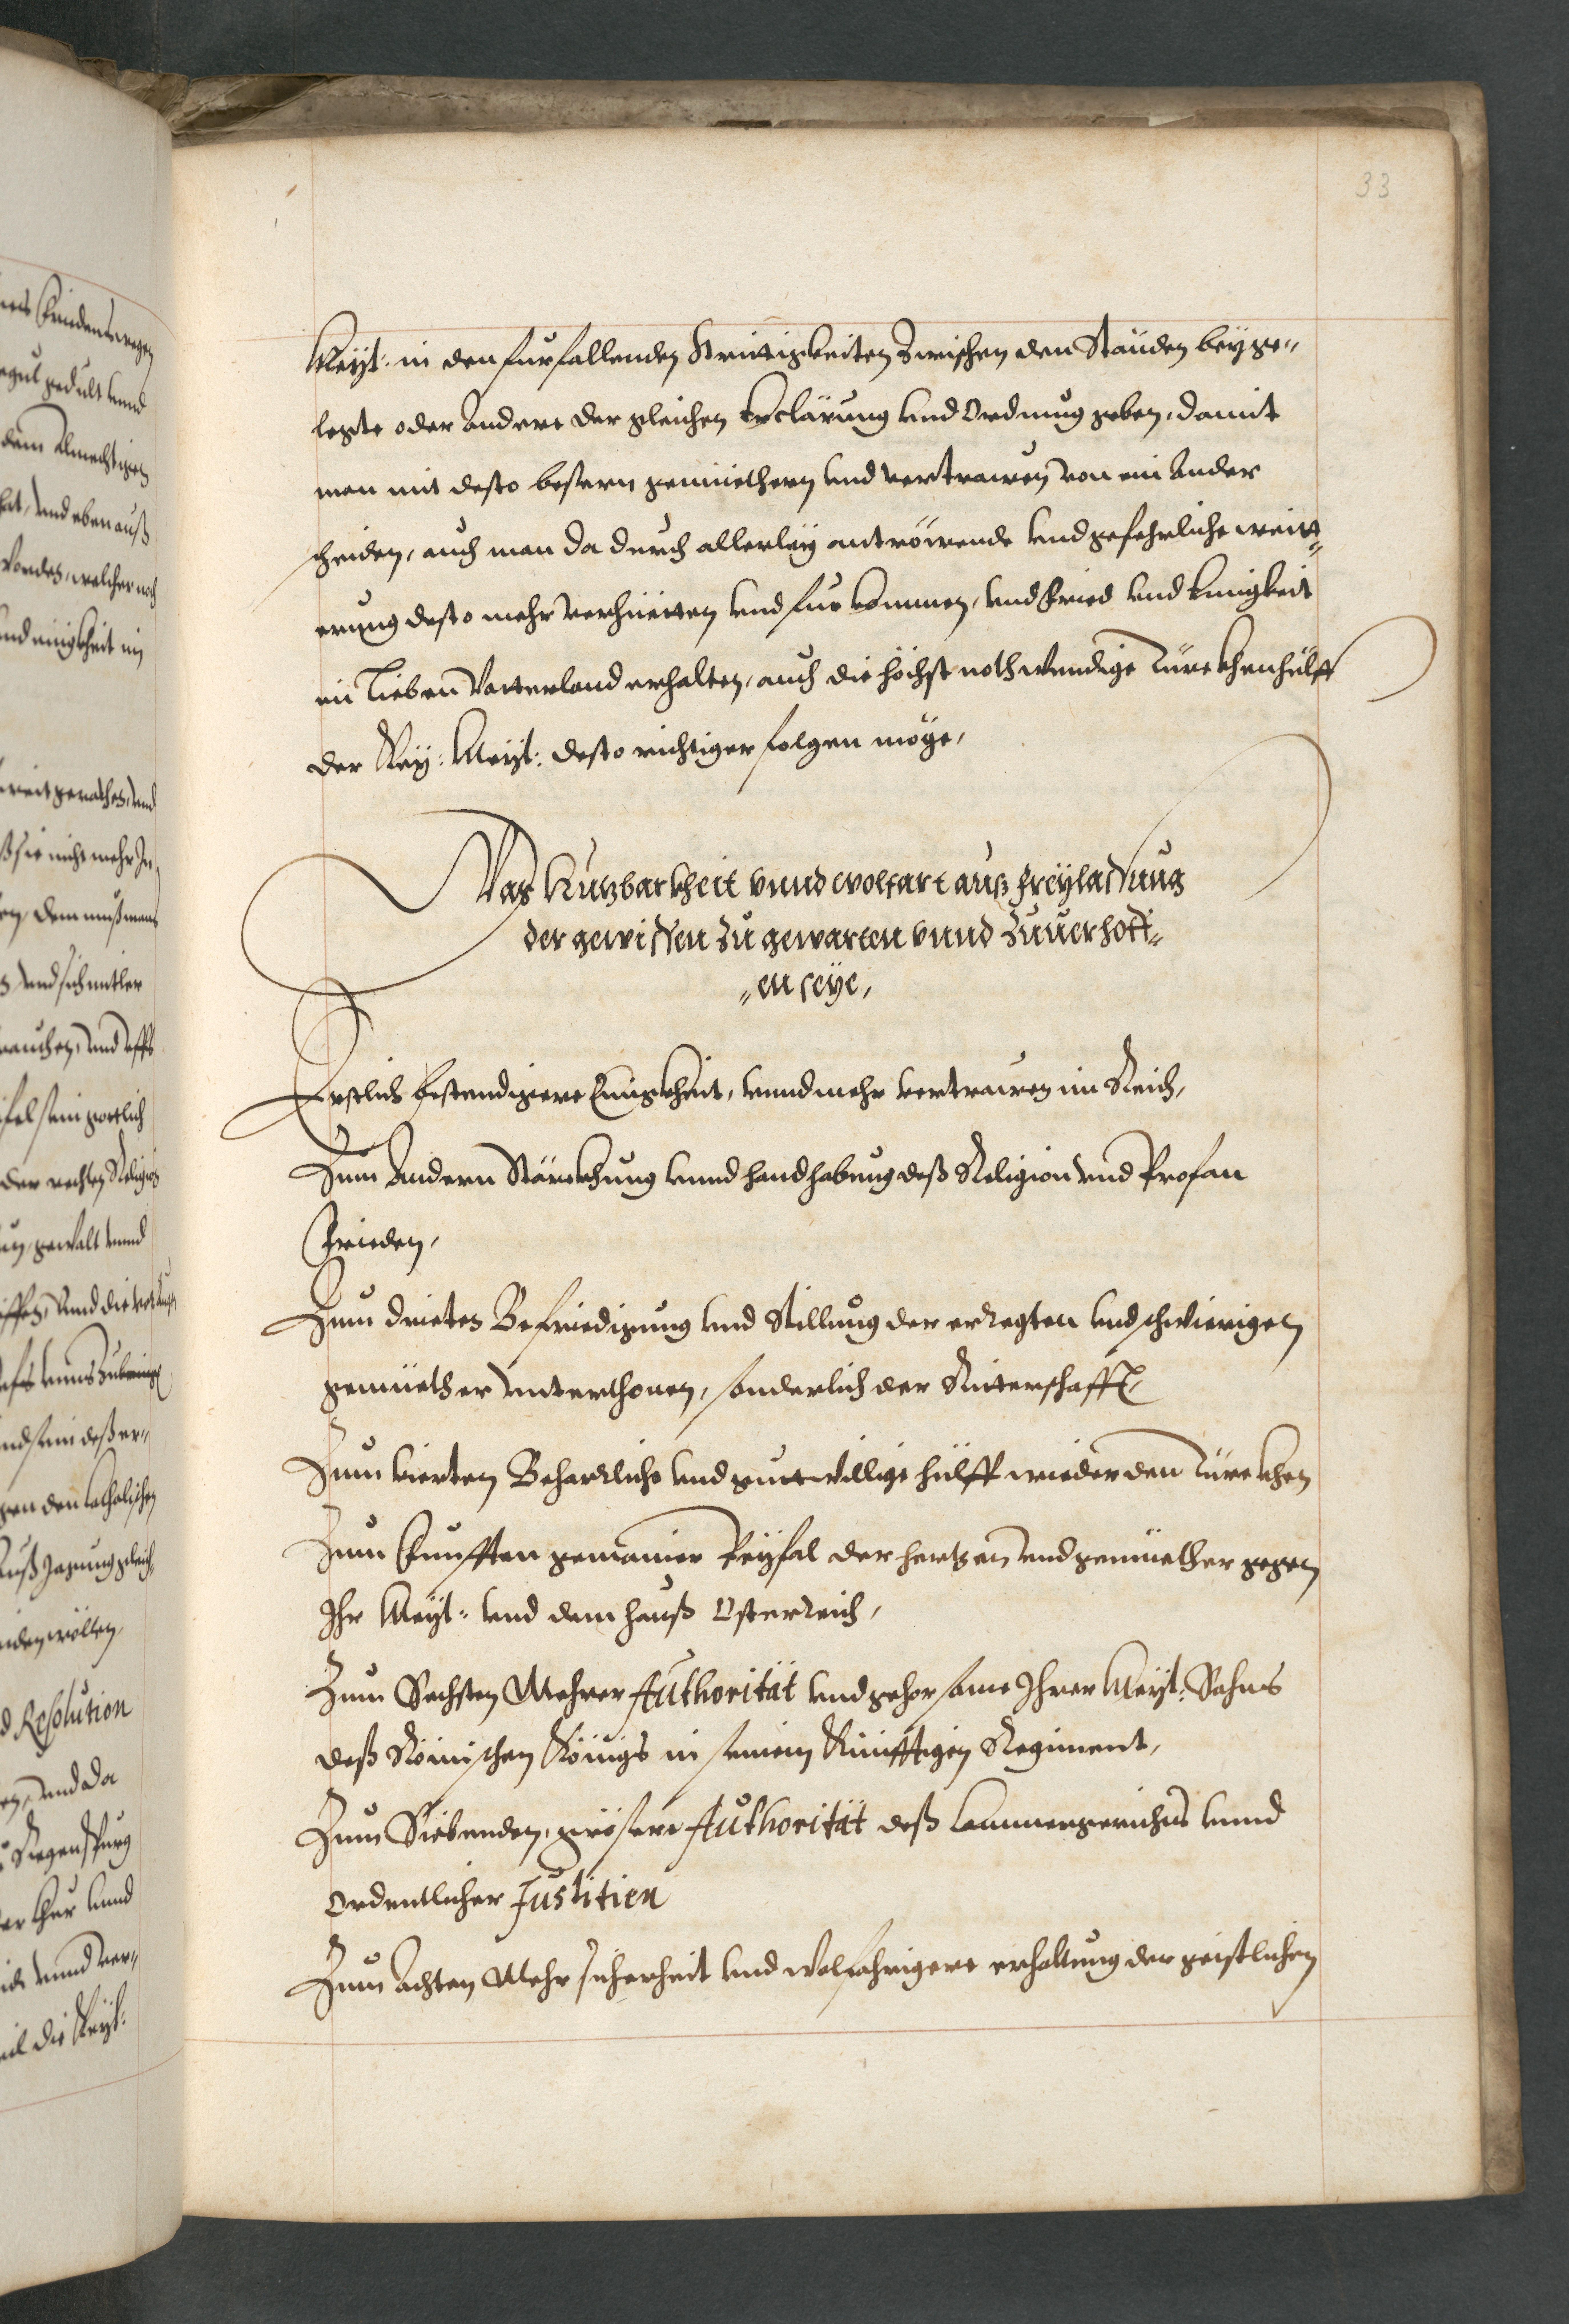 33
Meÿt: in den furfallenden Strittigkeiten zwischen den Stäuden beÿge„
legte oder andere der gleichen Erclärung vnd Ordnung geben, damit
man mit desto bessern gemüethern vnd vertrawen von ein ander
scheiden, auch man da durch allerleÿ antröwende vnd gefehrliche weitt„
erung desto mehr verhüetten vnd fur kommen, vnd Fried vnd Einigkeit
im Lieben Vatterland erhalten, auch die höchst nothwendige Türckhenhülff
der Keÿ: Meÿt: desto richtiger folgen möge,
Was Nutzbarkheit vnnd wolfart auß freÿlassung
der gewissen zu gewarten vnnd zuuerhoff„
„en seÿe,
Erstlich bestendigere Einigkheit, vnnd mehr vertrauwen im Reich,
Zum Andern Stärckhung vnnd handhabung deß Religion vnd Profan
Frieden,
Zum drieten Befriedigung vnd Stillung der erregten vnd schwierigen
gemüether vnterthonen, sonderlich der Ritterschafft,
Zum vierten Beharrliche vnd guttwillige hülff wieder den Türckhen
Zum Funfften gemainer Beÿfal der hertzen vnd gemüether gegen
Ihr Meÿt: vnd dem hauß Osterreich,
Zum Sechsten Mehrer Authorität vnd gehorsame Ihrer Meÿt: Sohns
deß Römischen Königs in seinem Künfftigen Regiment,
Zum Siebenden, grössere Authorität deß Cammergerichts vnnd
Ordentlicher Justitien
Zum Achten Mehr sicherheit vnd wolfahrigere erhaltung der geistlichen